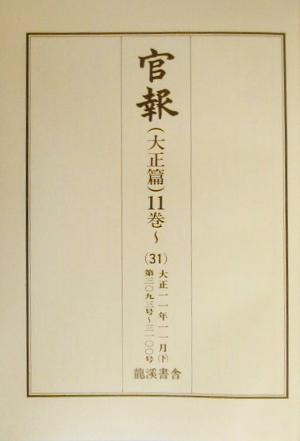 官報
(大正篇)11巻~
(31)
大正一一年一一月(下)
第三〇九三号~三一〇〇号
龍溪書舎